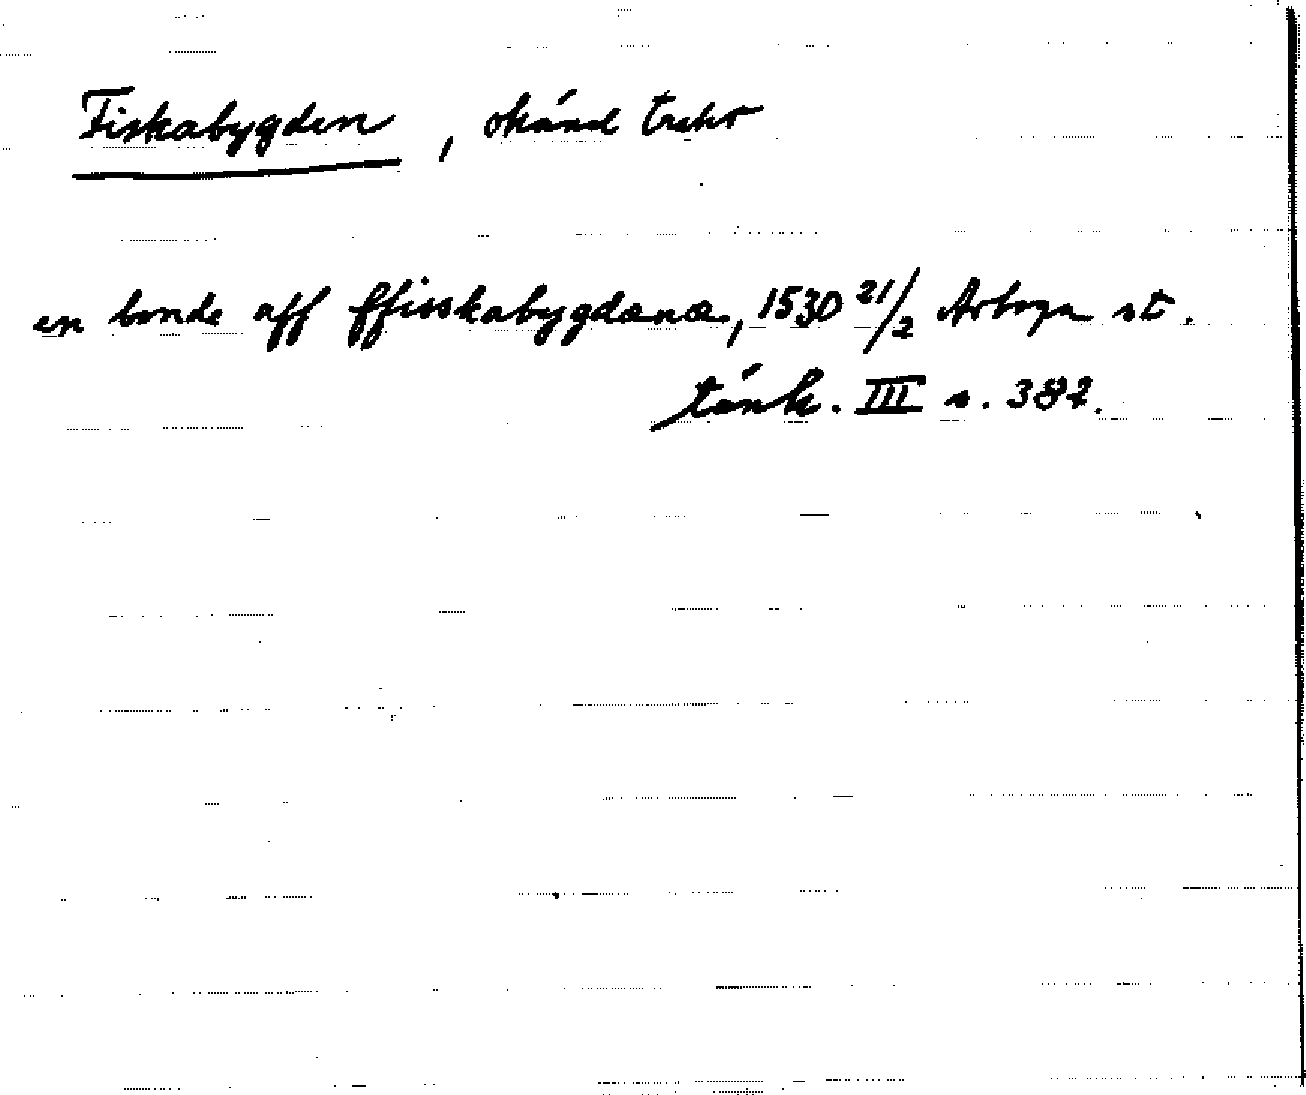 Fiskabygden, okänd trakt
en bonde aff ffisskabygdana, 1530 21/2 Arboga st.
tänk. III s. 382.